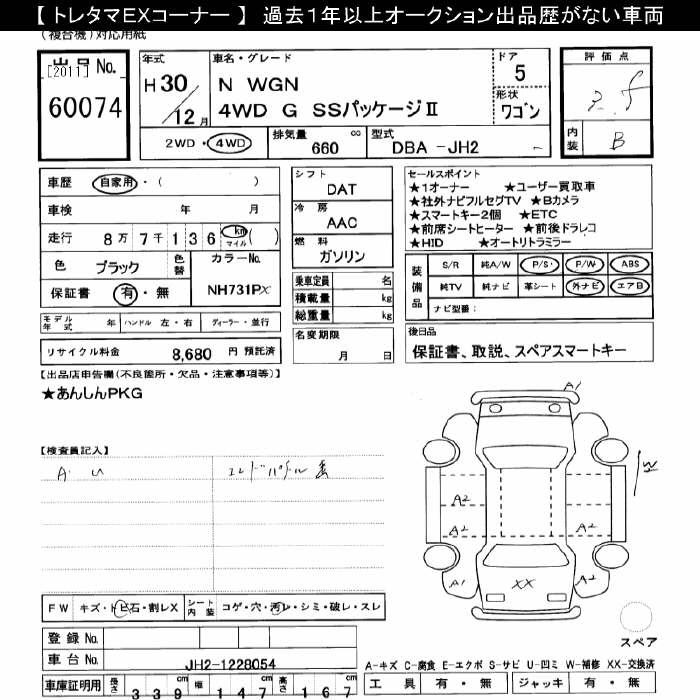 【 トレタマEXコーナー 】 過去1年以上オークション出品歴がない車両
(複合機)対応用紙
出品 No.
[2011]
60074
年式
H 30/12月
車名・グレード
N WGN
4WD G SSパッケージⅡ
ドア
5
形状
ワゴン
評価点
3.5
内装
B
2WD・4WD
排気量
660 cc
型式
DBA -JH2 -
車歴
自家用・( )
車検 年 月
走行 8万 7千 1 3 6 km マイル ( )
色 ブラック
色替
カラーNo.
NH731PX
保証書 有・無
モデル年式 年
ハンドル 左・右
ディーラー・並行
リサイクル料金 8,680 円 預託済
シフト
DAT
冷房
AAC
燃料
ガソリン
乗車定員 名
積載量 kg
総重量 kg
名変期限
月 日
セールスポイント
★1オーナー ★ユーザー買取車
★社外ナビフルセグTV ★Bカメラ
★スマートキー2個 ★ETC
★前席シートヒーター ★前後ドラレコ
★HID ★オートリトラミラー
装備品
S/R 純A/W P/S P/W ABS
純TV 純ナビ 革シート 外ナビ エアB
ナビ型番:
後日品
保証書、取説、スペアスマートキー
【出品店申告欄(不良箇所・欠品・注意事項等)】
★あんしんPKG
【検査員記入】
A. U
エンドパネル
A1
W2
A2
A2
A2
A2
A1
XX
A2
スペア
FW キズ・トビ石・割レX
シート内装 コゲ・穴・汚レ・シミ・破レ・スレ
登録 No.
車台 No. JH2-1228054
車庫証明用 長さ 339cm 幅 147cm 高さ 167cm
A-キズ C-腐食 E-エクボ S-サビ U-凹ミ W-補修 XX-交換済
工具 有・無 ジャッキ 有・無